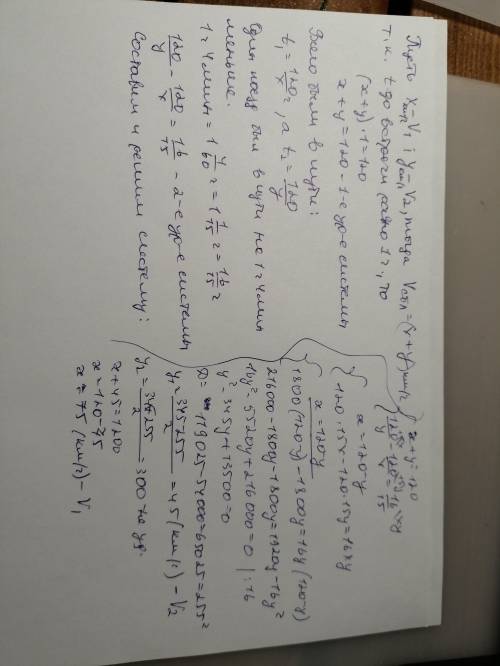 Пусть x км/ч – V₁ и y км/ч – V₂, тогда Vсбл = (x+y) км/ч
т.к. t до встречи равно 1 ч, то
(x+y)·1=120
x+y=120 – 1-е ур-е системы
Всего были в пути:
t₁ = 120/x ч, а t₂ = 120/y
Один поезд был в пути на 1ч 4мин
меньше.
1ч 4мин = 1 4/60 ч = 1 1/15 ч = 16/15 ч
120/y - 120/x = 16/15 – 2-е ур-е системы
Составим и решим систему:
{ x+y=120
120/y - 120/x = 16/15
{ x=120-y
120·15x-120·15y=16xy
{ x=120-y
1800(120-y)-1800y=16y(120-y)
216000-1800y-1800y=1920y-16y²
16y²-5520y+216000=0 |:16
y²-345y+13500=0
D=119025-54000=65025=255²
y₁=(345-255)/2=45 (км/ч) – V₂
y₂=(345+255)/2=300 не уд.
x+45=120
x=120-45
x=75 (км/ч) – V₁